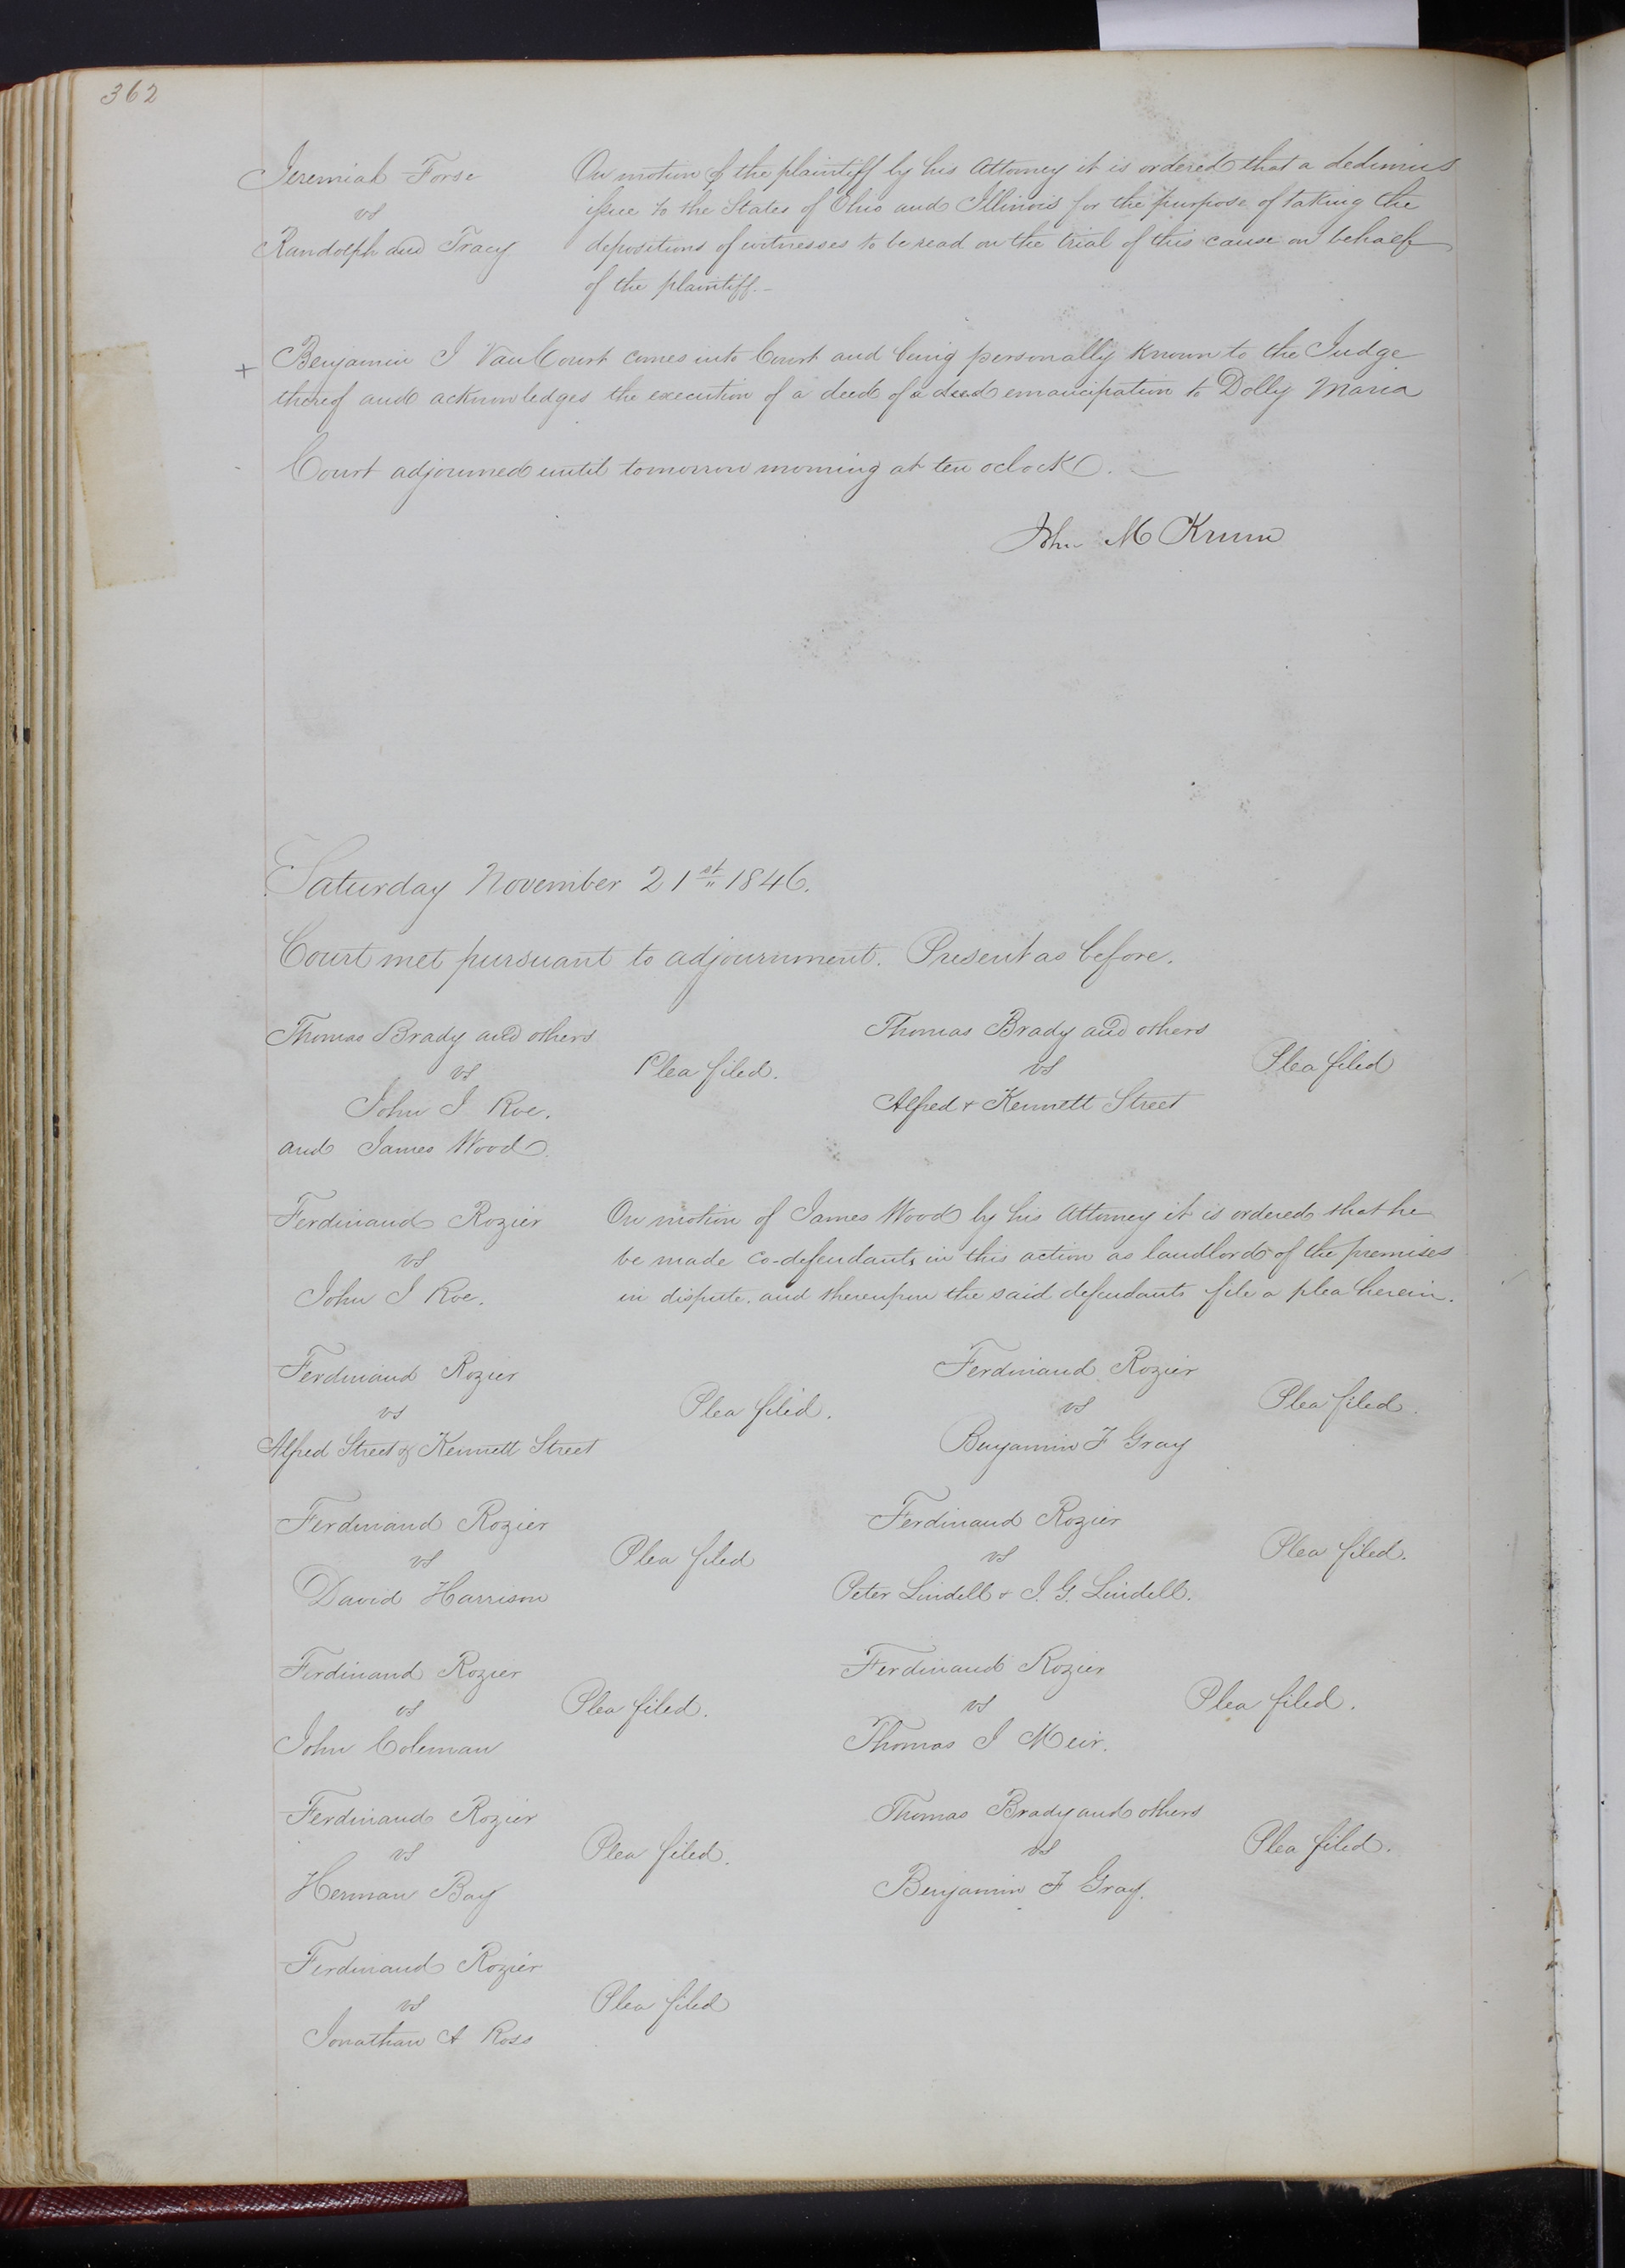 362
Jeremiah Forse
vs
Randolph and Tracy
On motion of the plaintiff by his Attorney it is ordered that a dedimus
issue to the States of Ohio and Illinois for the purpose of taking the
depositions of witnesses to be read on the trial of this cause on behalf
of the plaintiff.
+ Benjamin J VanCourt comes into Court and being personally known to the Judge
thereof and acknowledges the execution of a deed of a deed emancipation to Dolly Maria
Court adjourned until tomorrow morning at ten oclock.
John M Krum
Saturday November 21st 1846.
Court met pursuant to adjournment. Present as before.
Thomas Brady and others
vs
John J Roe.
and James Wood.
Plea filed.
Thomas Brady and others
vs
Alfred & Kennett Street
Plea filed
Ferdinand Rozier
vs
John J Roe.
On motion of James Wood by his Attorney it is ordered that he
be made co-defendants in this action as landlord of the premises
in dispute. and thereupon the said defendants file a plea herein.
Ferdinand Rozier
vs
Alfred Street & Kennett Street
Plea filed.
Ferdinand Rozier
vs
Benjamin F Gray
Plea filed.
Ferdinand Rozier
vs
David Harrison
Plea filed
Ferdinand Rozier
vs
Peter Lindell & J. G. Lindell.
Plea filed.
Ferdinand Rozier
vs
John Coleman
Plea filed.
Ferdinand Rozier
vs
Thomas J Meir.
Plea filed.
Ferdinand Rozier
vs
Herman Bay
Plea filed.
Thomas Brady and others
vs
Benjamin F Gray.
Plea filed.
Ferdinand Rozier
vs
Jonathan A Ross
Plea filed